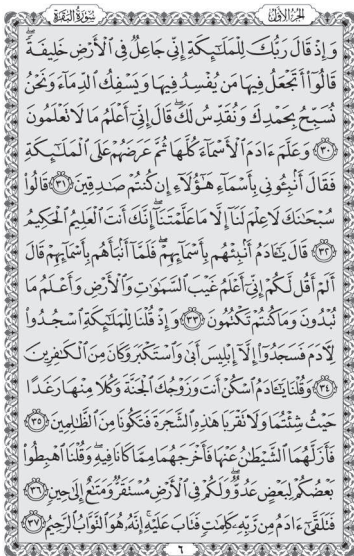 سُورَةُ البَقَرَةِ الجُزْءُ الأَوَّلُ
وَإِذْ قَالَ رَبُّكَ لِلْمَلَٰٓئِكَةِ إِنِّي جَاعِلٌ فِي ٱلْأَرْضِ خَلِيفَةً ۖ
قَالُوٓا۟ أَتَجْعَلُ فِيهَا مَن يُفْسِدُ فِيهَا وَيَسْفِكُ ٱلدِّمَآءَ وَنَحْنُ
نُسَبِّحُ بِحَمْدِكَ وَنُقَدِّسُ لَكَ ۖ قَالَ إِنِّيٓ أَعْلَمُ مَا لَا تَعْلَمُونَ
٣٠ وَعَلَّمَ ءَادَمَ ٱلْأَسْمَآءَ كُلَّهَا ثُمَّ عَرَضَهُمْ عَلَى ٱلْمَلَٰٓئِكَةِ
فَقَالَ أَنۢبِـُٔونِي بِأَسْمَآءِ هَٰٓؤُلَآءِ إِن كُنتُمْ صَٰدِقِينَ ٣١ قَالُوا۟
سُبْحَٰنَكَ لَا عِلْمَ لَنَآ إِلَّا مَا عَلَّمْتَنَآ ۖ إِنَّكَ أَنتَ ٱلْعَلِيمُ ٱلْحَكِيمُ
٣٢ قَالَ يَٰٓـَٔادَمُ أَنۢبِئْهُم بِأَسْمَآئِهِمْ ۖ فَلَمَّآ أَنۢبَأَهُم بِأَسْمَآئِهِمْ قَالَ
أَلَمْ أَقُل لَّكُمْ إِنِّيٓ أَعْلَمُ غَيْبَ ٱلسَّمَٰوَٰتِ وَٱلْأَرْضِ وَأَعْلَمُ مَا
تُبْدُونَ وَمَا كُنتُمْ تَكْتُمُونَ ٣٣ وَإِذْ قُلْنَا لِلْمَلَٰٓئِكَةِ ٱسْجُدُوا۟
لِـَٔادَمَ فَسَجَدُوٓا۟ إِلَّآ إِبْلِيسَ أَبَىٰ وَٱسْتَكْبَرَ وَكَانَ مِنَ ٱلْكَٰفِرِينَ
٣٤ وَقُلْنَا يَٰٓـَٔادَمُ ٱسْكُنْ أَنتَ وَزَوْجُكَ ٱلْجَنَّةَ وَكُلَا مِنْهَا رَغَدًا
حَيْثُ شِئْتُمَا وَلَا تَقْرَبَا هَٰذِهِ ٱلشَّجَرَةَ فَتَكُونَا مِنَ ٱلظَّٰلِمِينَ ٣٥
فَأَزَلَّهُمَا ٱلشَّيْطَٰنُ عَنْهَا فَأَخْرَجَهُمَا مِمَّا كَانَا فِيهِ ۖ وَقُلْنَا ٱهْبِطُوا۟
بَعْضُكُمْ لِبَعْضٍ عَدُوٌّ ۖ وَلَكُمْ فِي ٱلْأَرْضِ مُسْتَقَرٌّ وَمَتَٰعٌ إِلَىٰ حِينٍ ٣٦
فَتَلَقَّىٰٓ ءَادَمُ مِن رَّبِّهِۦ كَلِمَٰتٍ فَتَابَ عَلَيْهِ ۚ إِنَّهُۥ هُوَ ٱلتَّوَّابُ ٱلرَّحِيمُ ٣٧
٦